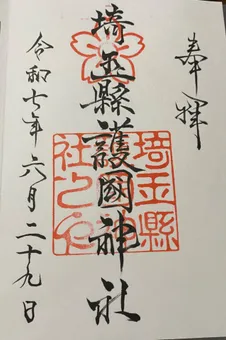 奉拝
埼玉縣護國神社
令和七年六月二十九日
埼玉縣
護國神
社之印